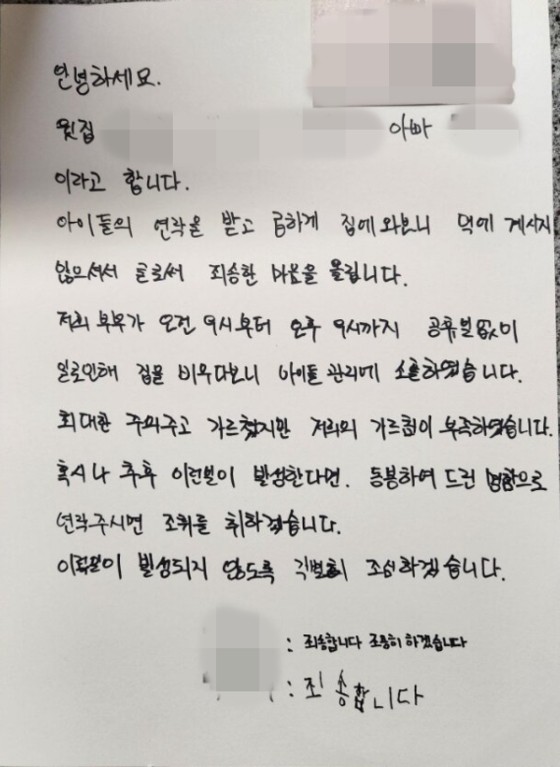 안녕하세요.
윗집 아빠
이라고 합니다.
아이들의 연락을 받고 급하게 집에 와보니 댁에 계시지
않으셔서 글로써 죄송한 마음을 올립니다.
저희 부부가 오전 9시부터 오후 9시까지 공휴일없이
일로인해 집을 비우다보니 아이들 관리에 소홀하였습니다.
최대한 주의주고 가르쳤지만 저희의 가르침이 부족하였습니다.
혹시나 추후 이런일이 발생한다면. 동봉하여 드린 명함으로
연락주시면 조취를 취하겠습니다.
발생되지 않도록 각별히 조심하겠습니다.
: 죄송합니다 조용히 하겠습니다
: 죄송합니다